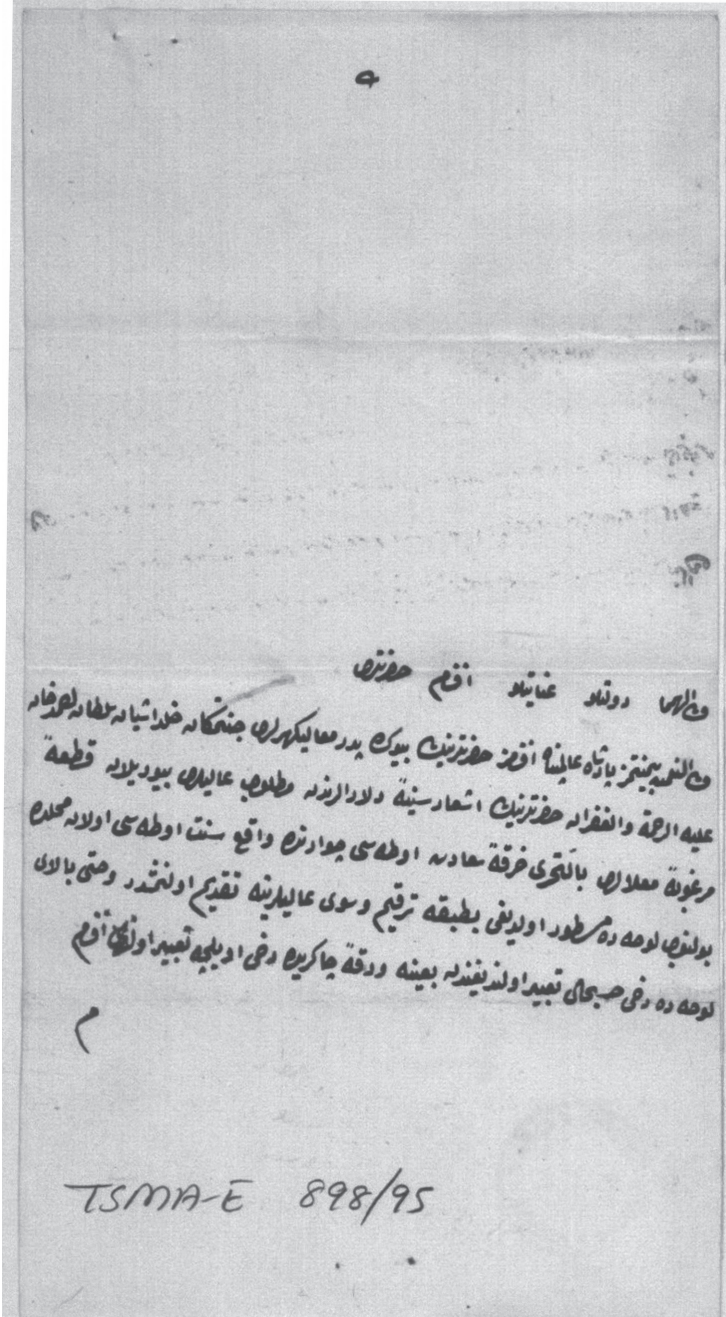 ه
ولی‌النعما دولتلو عنایتلو افندم حضرتلری
ولی‌النعم بیمنتمز پادشاه عالمپناه افندمز حضرتلرینك بیوك پدر معالیگهرلری جنتمكان خلدآشیان سلطان احمد خان
علیه الرحمة والغفران حضرتلرینك اشعار سنیه‌لرندن مطلوب عالیلری بیوریلان قطعۀ
مرغوبۀ معلالری بالتحری خرقۀ سعادت اوطه‌سی جوارنده واقع سنت اوطه‌سی اولان محلده
بولنوب لوحه‌ده مسطور اولدیغی بطبقه ترقیم وسوی عالیلرینه تقدیم اولنمشدر وحتی بالای
لوحه‌ده دخی حسبحالی تعبیر اولندیغندن بعینه ورقۀ چاكریده دخی اویلجه تعبیر اولنمشدر افندم
م
TSMA-E 898/95